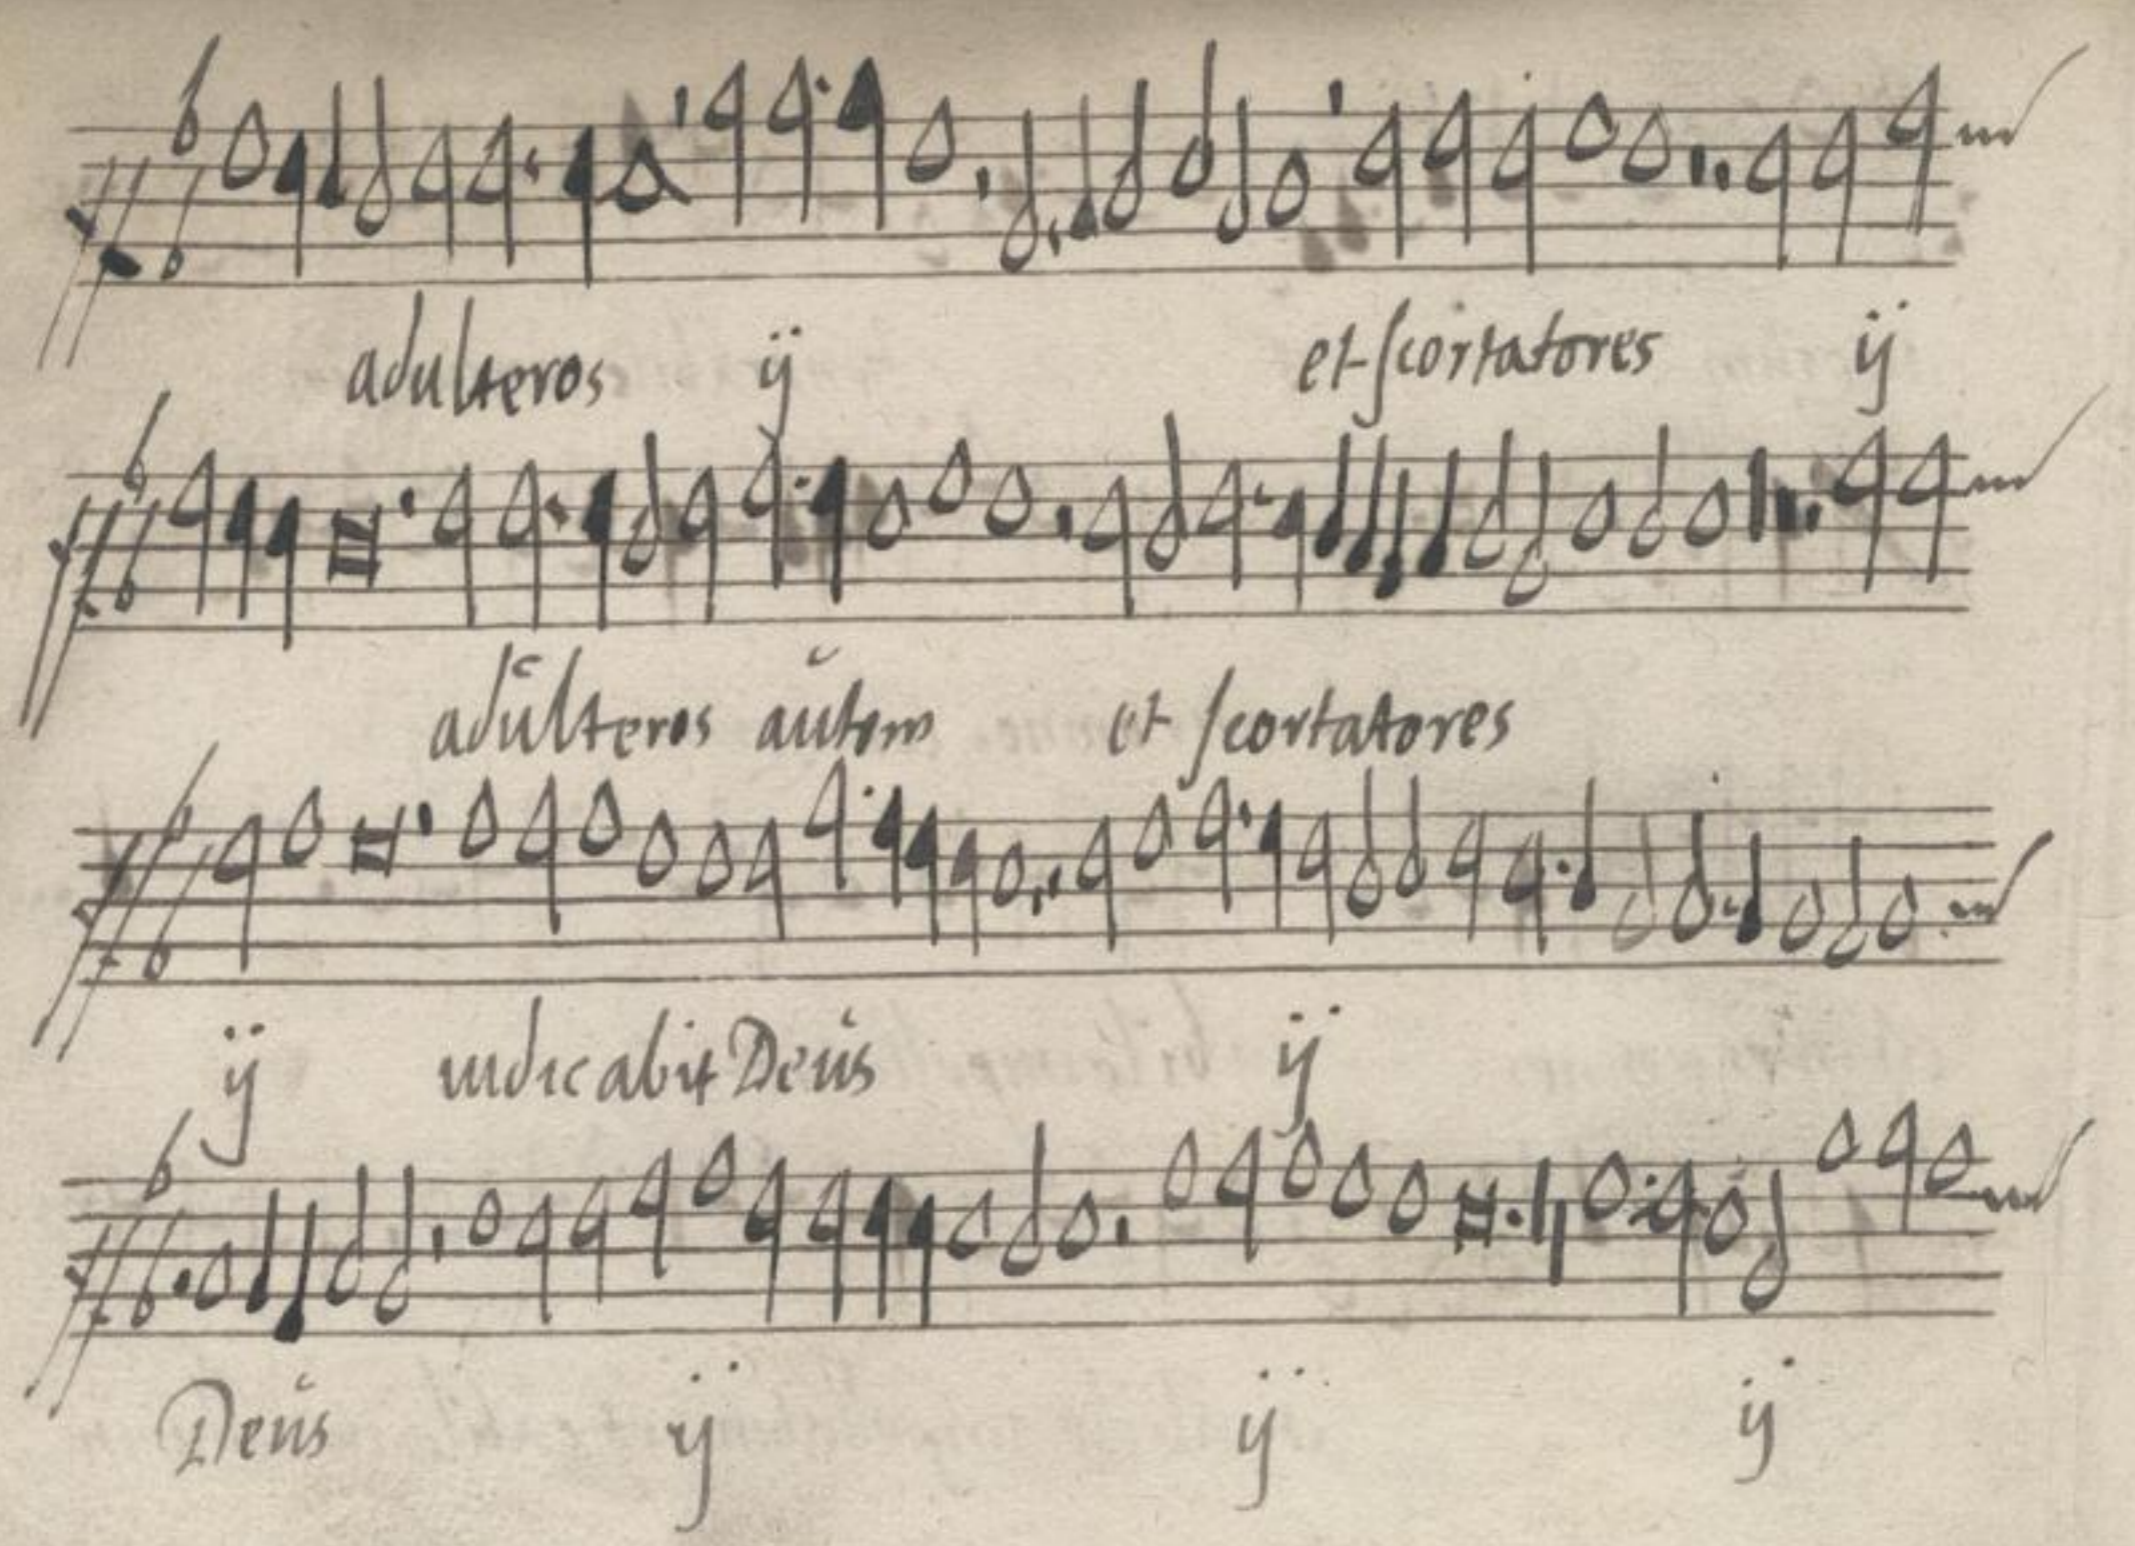 adulteros ij et scortatores ij
adŭlteros aŭtem et scortatores
ij iudicabit Deŭs ij
Deŭs ij ij ij